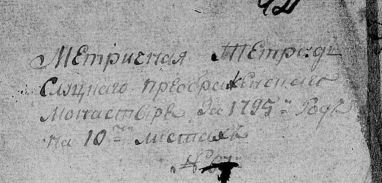 Метрисная Тетрадь
Слуцкаго преображенскаго
Монастыря за 1795й Годъ
на 10ти листахъ